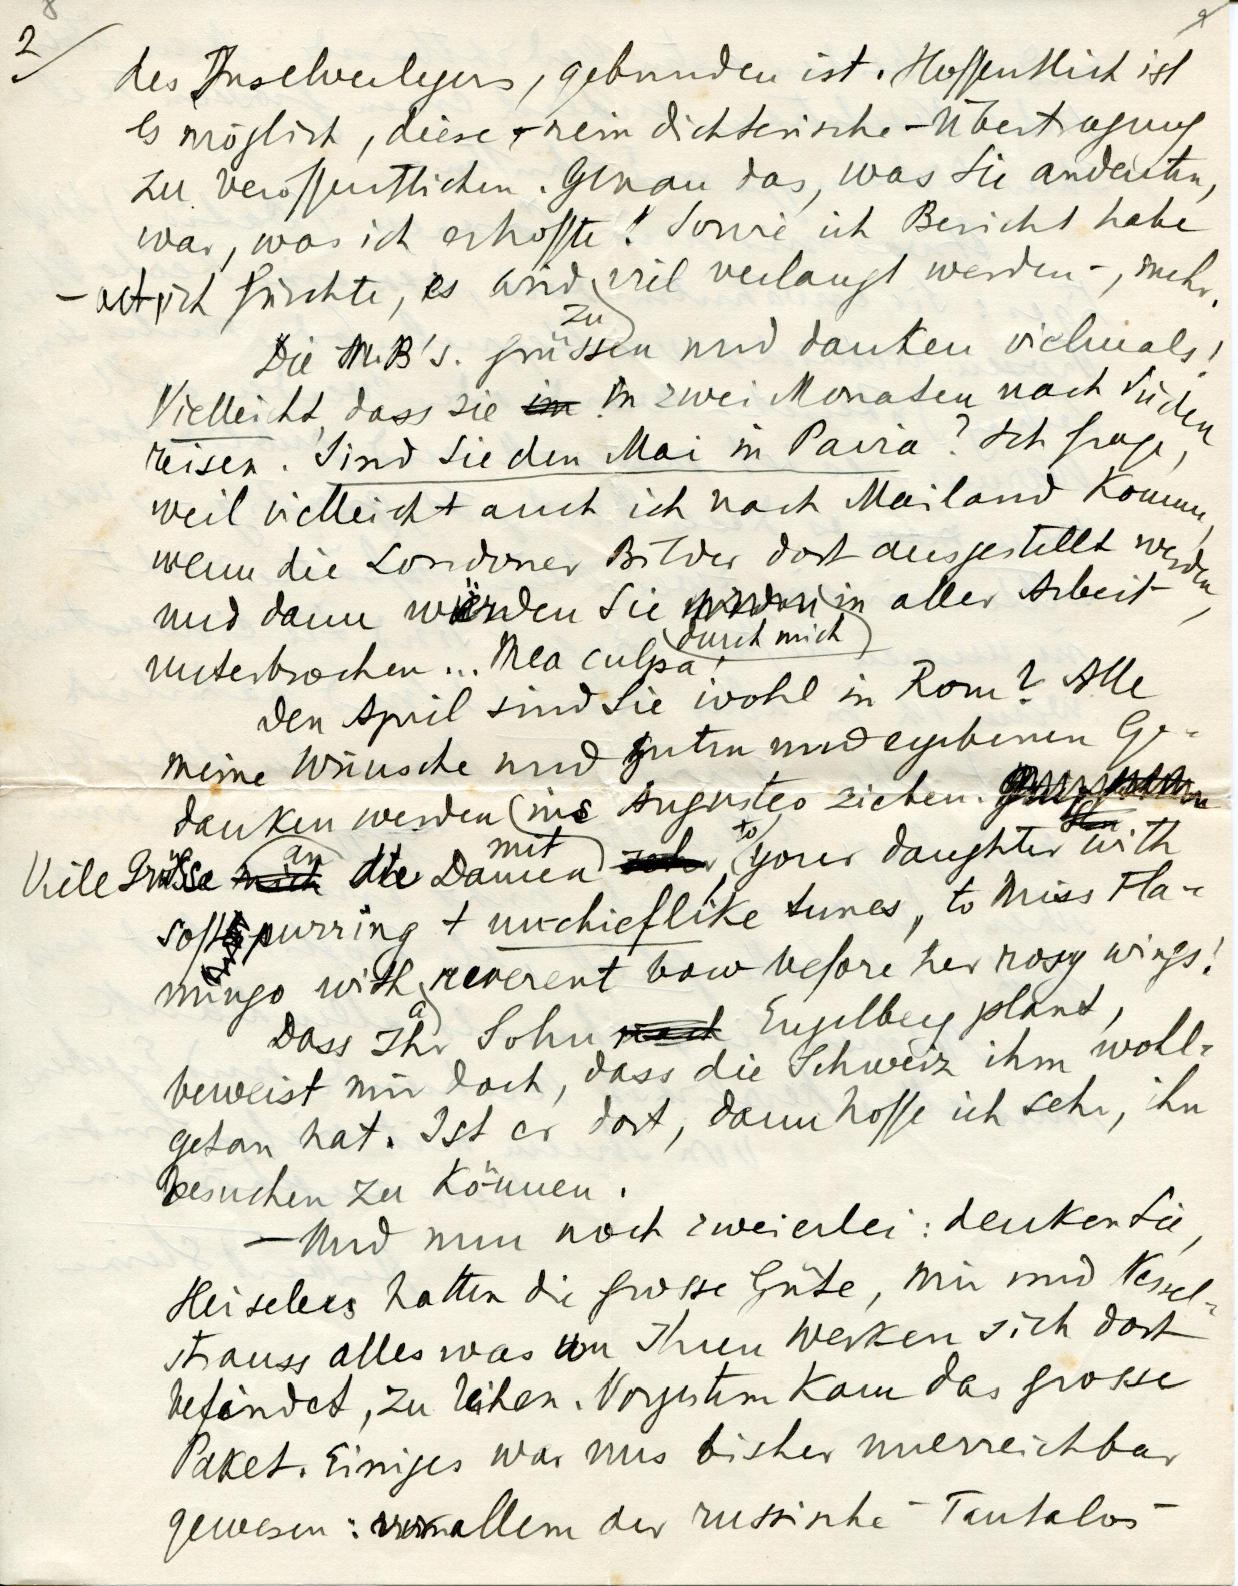 2
des Inselverlegers, gebunden ist. Hoffentlich ist
es möglich, diese – rein dichterische – Übertragung
zu veröffentlichen. Genau das, was Sie andeuten,
war, was ich erhoffte! Sowie ich Bericht habe
– ich fürchte, es wird zu viel verlangt werden –, mehr.
Die M.B's. grüssen und danken vielmals!
Vielleicht, dass sie in zwei Monaten nach Süden
reisen. Sind Sie den Mai in Pavia? Ich frage,
weil vielleicht auch ich nach Mailand komme,
wenn die Londoner Bilder dort ausgestellt werden,
und dann würden Sie durch mich in aller Arbeit
unterbrochen... Mea culpa!
Den April sind Sie wohl in Rom? Alle
meine Wünsche und guten und ergebenen Ge-
danken werden ins Augusteo ziehen.
Viele Grüsse an die Damen mit to your daughter with
soft purring + mischieflike tunes, to Miss Fla-
mingo with a reverent bow before her rosy wings!
Dass Ihr Sohn Engelberg plant,
beweist mir doch, dass die Schweiz ihm wohl-
getan hat. Ist er dort, dann hoffe ich sehr, ihn
besuchen zu können.
– Und nun noch zweierlei: denken Sie,
Heiselers hatten die grosse Güte, mir und Nessel-
strauss alles was von Ihren Werken sich dort
befindet, zu leihen. Vorgestern kam das grosse
Paket. Einiges war uns bisher unerreichbar
gewesen: vor allem der russische – Tantalos –